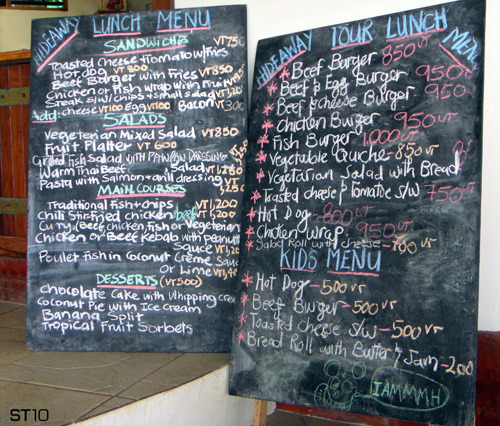 HIDEAWAY LUNCH MENU
SANDWICHES
Toasted Cheese & Tomato w/fries VT750
Hot dog VT800
Beef Burger with Fries VT850
Chicken or Fish wrap with Fruit
Steak s/w/ chips & small salad
Add: cheese VT100 Egg VT100 Bacon VT300
SALADS
Vegeterian Mixed Salad VT850
Fruit Platter VT600
Grilled Fish Salad with PAWPAW DRESSING
Warm Thai Beef Salad
Pasta with Salmon & dill dressing
MAIN COURSES
Traditional Fish & Chips VT1,200
Chili Stir-fried chicken/beef VT1,200
Curry (Beef, chicken, fish or Vegeterian
Chicken or Beef Kebab with peanut
Sauce
Poulet fish in Coconut Creme Sauce
or Lime
DESSERTS (VT500)
Chocolate Cake with Whipping cream
Coconut Pie with Ice Cream
Banana Split
Tropical Fruit Sorbets
HIDEAWAY TOUR LUNCH MENU
* Beef Burger 850VT
* Beef & Egg Burger 950
* Beef & Cheese Burger 950
* Chicken Burger 950VT
* Fish Burger 1,000VT
* Vegetable Quiche - 850VT
* Vegetarian Salad with Bread
* Toasted cheese & Tomatoe s/w 750VT
* Hot Dog - 800VT
* Chicken wrap 950VT
* Salad Roll with cheese - 700VT
KIDS MENU
* Hot Dog - 500VT
* Beef Burger - 500VT
* Toasted cheese s/w - 500VT
* Bread Roll with Butter & Jam - 200
IAMMMH
ST10